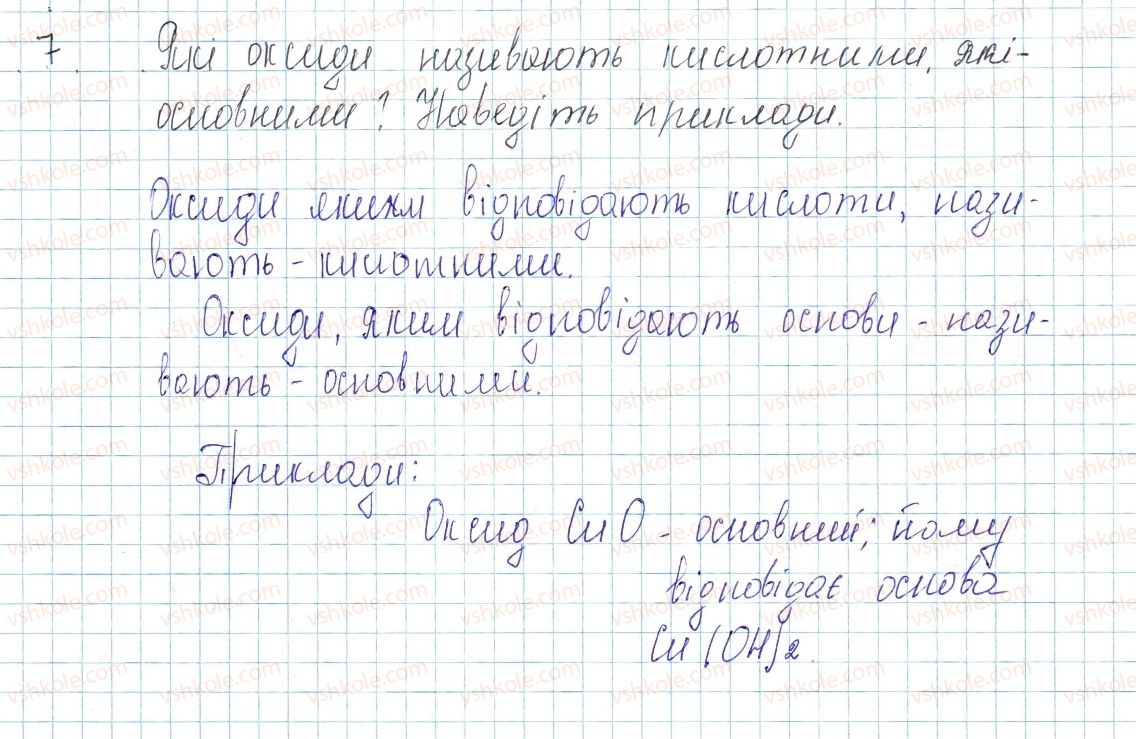 7. Які оксиди називають кислотними, які-
основними? Наведіть приклади.
Оксиди яким відповідають кислоти, нази-
вають - кислотними.
Оксиди, яким відповідають основи - нази-
вають - основними.
Приклади:
Оксид CuO - основний; йому
відповідає основа
Cu(OH)2.